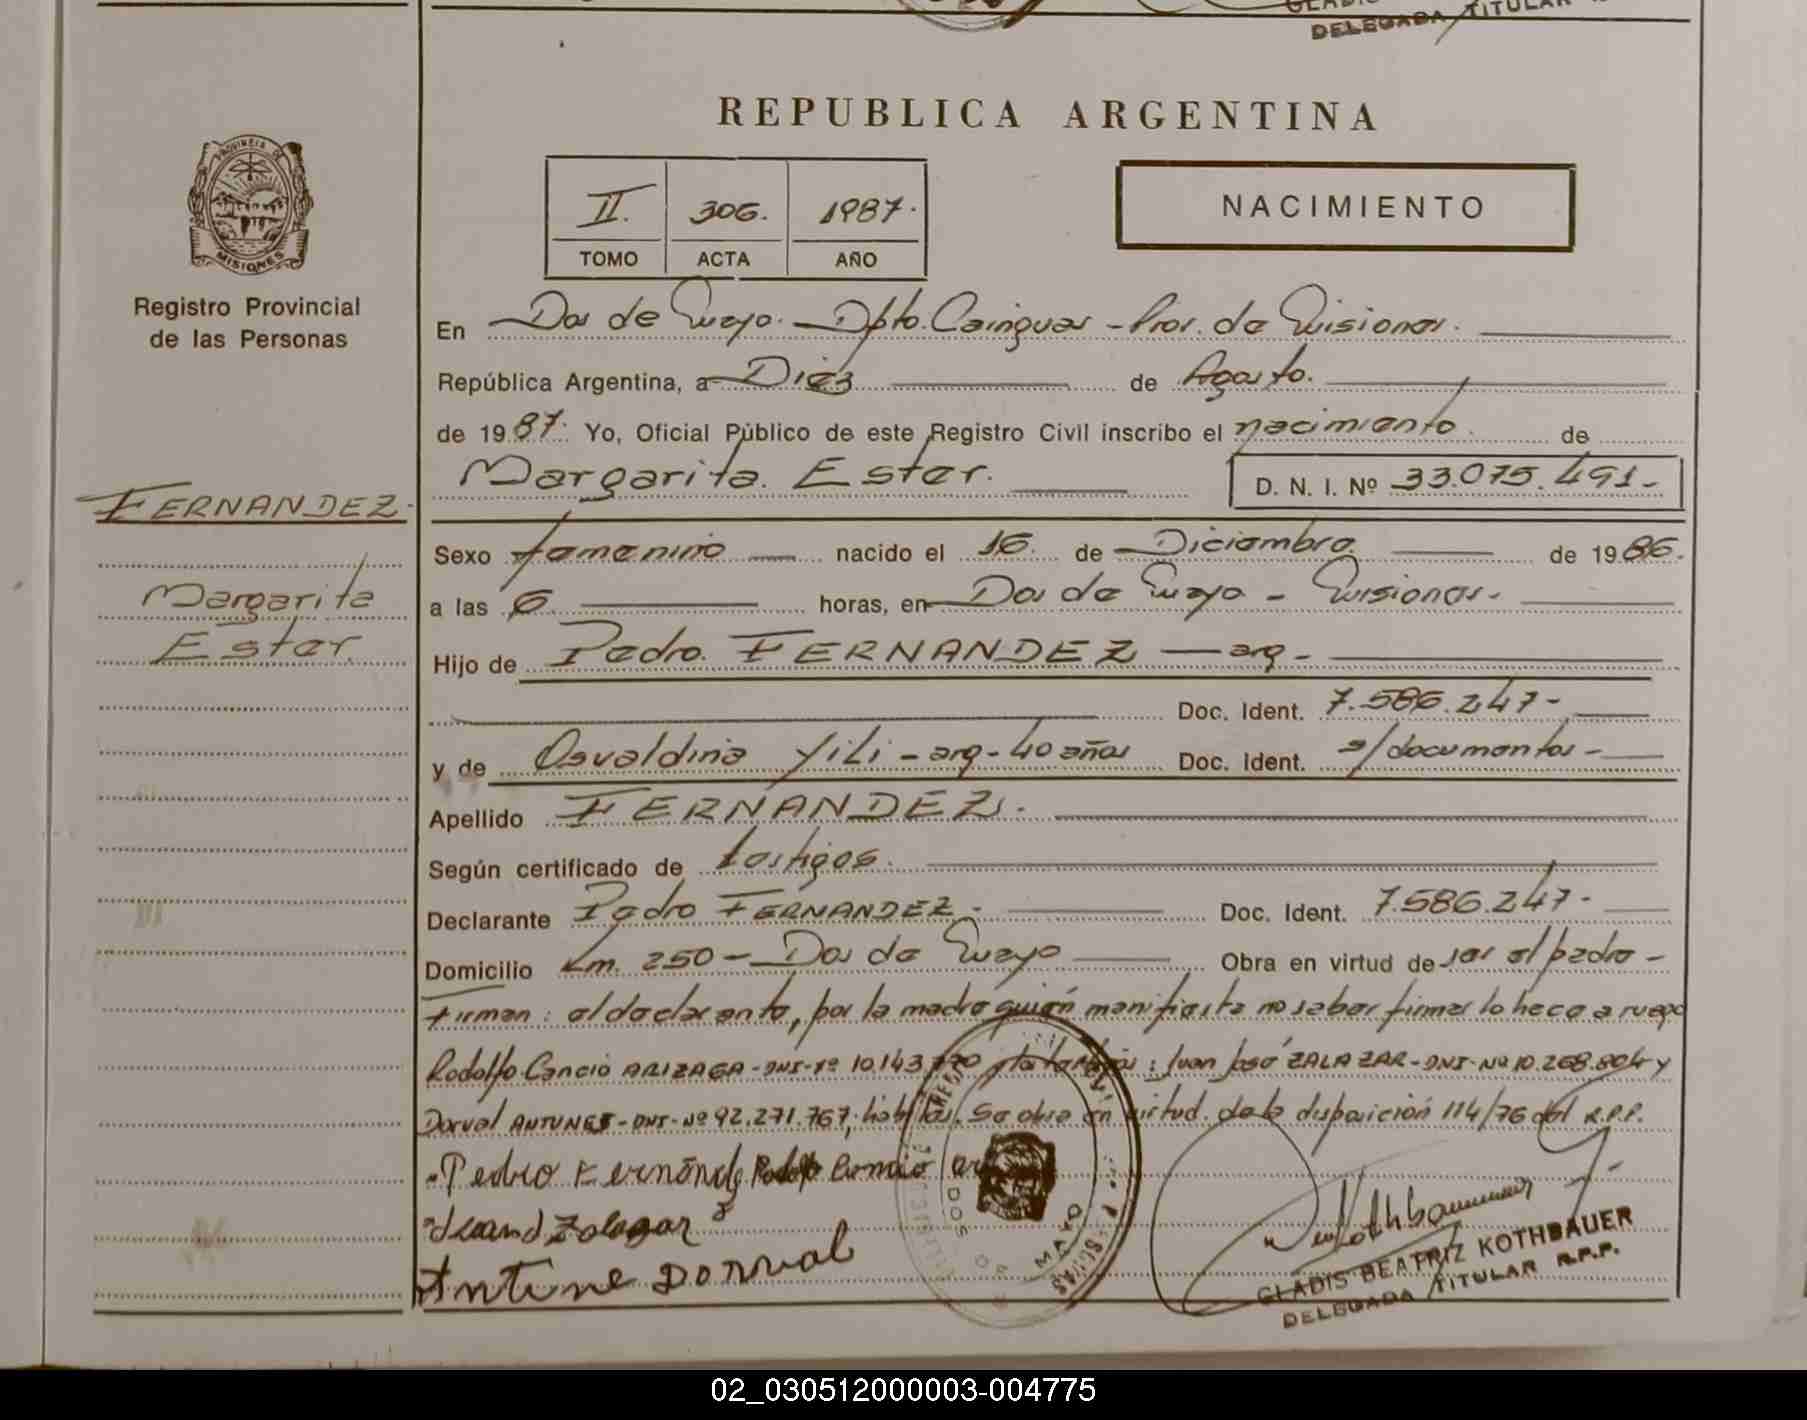 DELEGADA TITULAR
REPUBLICA ARGENTINA
PROVINCIA DE
MISIONES
Registro Provincial
de las Personas
II. 306. 1987.
TOMO ACTA AÑO
NACIMIENTO
En Dos de Mayo. Dpto. Cainguas - Prov. de Misiones.
República Argentina, a Diez de Agosto.
de 1987. Yo, Oficial Público de este Registro Civil inscribo el nacimiento. de
Margarita Ester. D. N. I. Nº 33.075.491-
FERNANDEZ.
Margarita
Ester
Sexo femenino nacido el 16. de Diciembre de 1986.
a las 6 horas, en Dos de Mayo - Misiones-
Hijo de Pedro FERNANDEZ - arg -
Doc. Ident. 7.586.247-
y de Osvaldina Yili - arg - 40 años Doc. Ident. s/documentos -
Apellido FERNANDEZ.
Según certificado de testigos.
Declarante Pedro FERNANDEZ - Doc. Ident. 7.586.247-
Domicilio Km. 250 - Dos de Mayo Obra en virtud de ser el padre -
Firman: el declarante, por la madre quién manifiesta no saber firmar lo hace a ruego
Rodolfo Cancio ARIZAGA - DNI - Nº 10.143.770 y los testigos: Juan José ZALAZAR - DNI - Nº 10.268.804 y
Dorval ANTUNES - DNI - Nº 92.271.767; hábiles. Se obra en virtud de la disposición 114/76 del R.P.P.
Pedro Fernández Rodolfo Cancio
Juan J Zalazar
Antune Dorval
DOS DE MAYO
GLADIS BEATRIZ KOTHBAUER
DELEGADA TITULAR R.P.P.
02_030512000003-004775